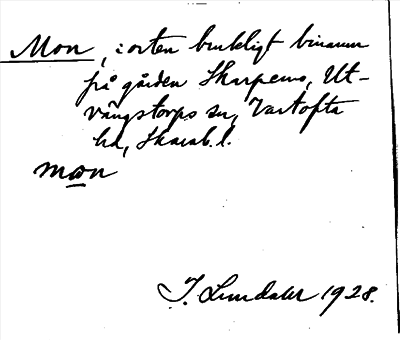 Mon, i orten brukligt binamn
på gården Skarpeno, Ut-
vängstorps sn, Vartofta
hd, Skarab. l.
mon
J. Lundahl 1928.